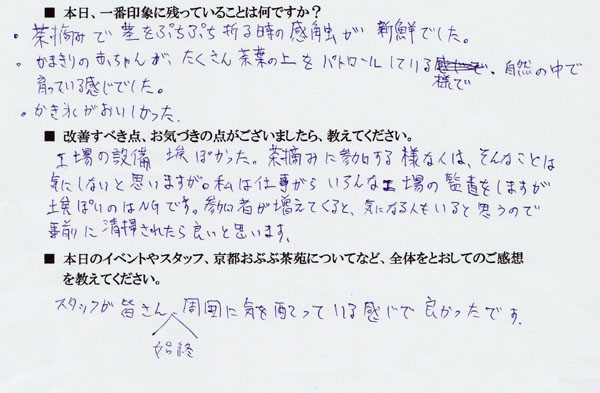 ■ 本日、一番印象に残っていることは何ですか?
・茶摘みで茎をぷちぷち折る時の感触が新鮮でした。
・かまきりの赤ちゃんが、たくさん茶葉の上をパトロールしている様で、自然の中で
育っている感じでした。
・かき氷がおいしかった.
■ 改善すべき点、お気づきの点がございましたら、教えてください。
工場の設備 埃ぽかった。茶摘みに参加する様なくは、そんなことは
気にしないと思いますが。私は仕事がらいろんな工場の監査をしますが
埃ぽいのはNGです。参加者が増えてくると、気になる人もいると思うので
事前に清掃されたら良いと思います。
■ 本日のイベントやスタッフ、京都おぶぶ茶苑についてなど、全体をとおしてのご感想
を教えてください。
スタッフが皆さん 周囲に気を配っている感じで良かったです.